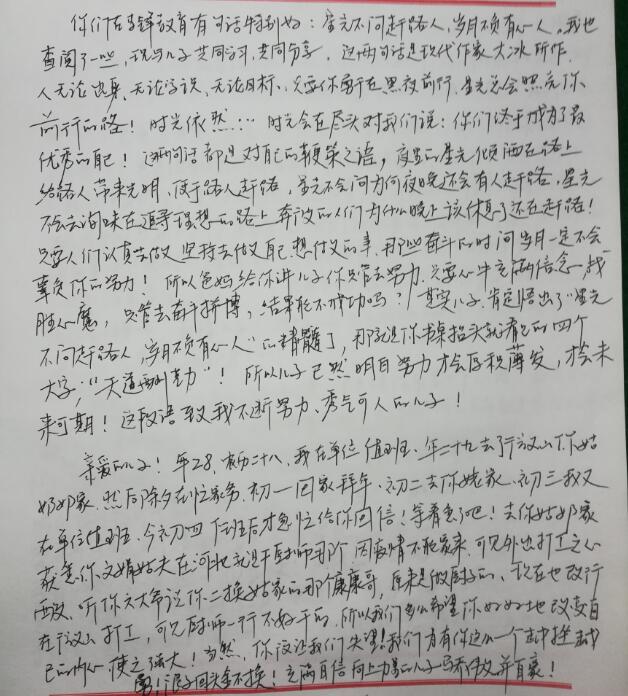 你们在李锋教育有句话特别好：星光不问赶路人，岁月不负有心人。我也
查阅了一些，现与儿子共同学习，共同分享，这两句话是现代作家大冰所作，
人无论出身、无论学识、无论目标、只要你敢于在黑夜前行，星光总会照亮你
前行的路！时光依然…时光会在尽头对我们说：你们终于成为了最
优秀的自己！这两句话都是对自己的鞭策之语，夜里的星光倾洒在路上
给路人带来光明，便于路人赶路，星光不会问为何夜晚还会有人赶路，星光
不会去询味在追寻理想的路上奔波的人们为什么晚上该休息了还在赶路！
只要人们认真去做 坚持去做自己想做的事，那些奋斗的时间岁月一定不会
辜负你的努力！所以爸妈给你讲儿子你只管去努力，只要心中充满信念，战
胜心魔，只管去奋斗拼搏，结果能不成功吗？其实儿子，肯定悟出了“星光
不问赶路人，岁月不负有心人”的精髓了，那就是你书桌抬头就看见的四个
大字，“天道酬勤”！所以儿子已然明白努力才会厚积薄发，才会未
来可期！这段话致我不断努力、秀气可人的儿子！
亲爱的儿子！年28，初二十八，我在单位值班，年二十九去了行议山你姑
奶奶家，然后除夕在忙家务，初一回家拜年，初二去你姥家，初三我又
在单位值班，今初四值班后才急忙给你回信！等着急了吧！去你姑奶家
获悉你文娟姑夫在河北就是干厨师那个因疫情不能家来，可见外出打工之心
酸，听你大大爷说你二换姑家的那个康康哥，原来是做厨子的，现在也改行
在行议山打工，可见厨师一行不好干的，所以我们多么希望你好好地改变自
己的内心使之强大！当然，你没让我们失望！我们为有你这么一个击中挫击或
勇！浪子回头金不换！充满自信向上力量的儿子而骄傲并自豪！